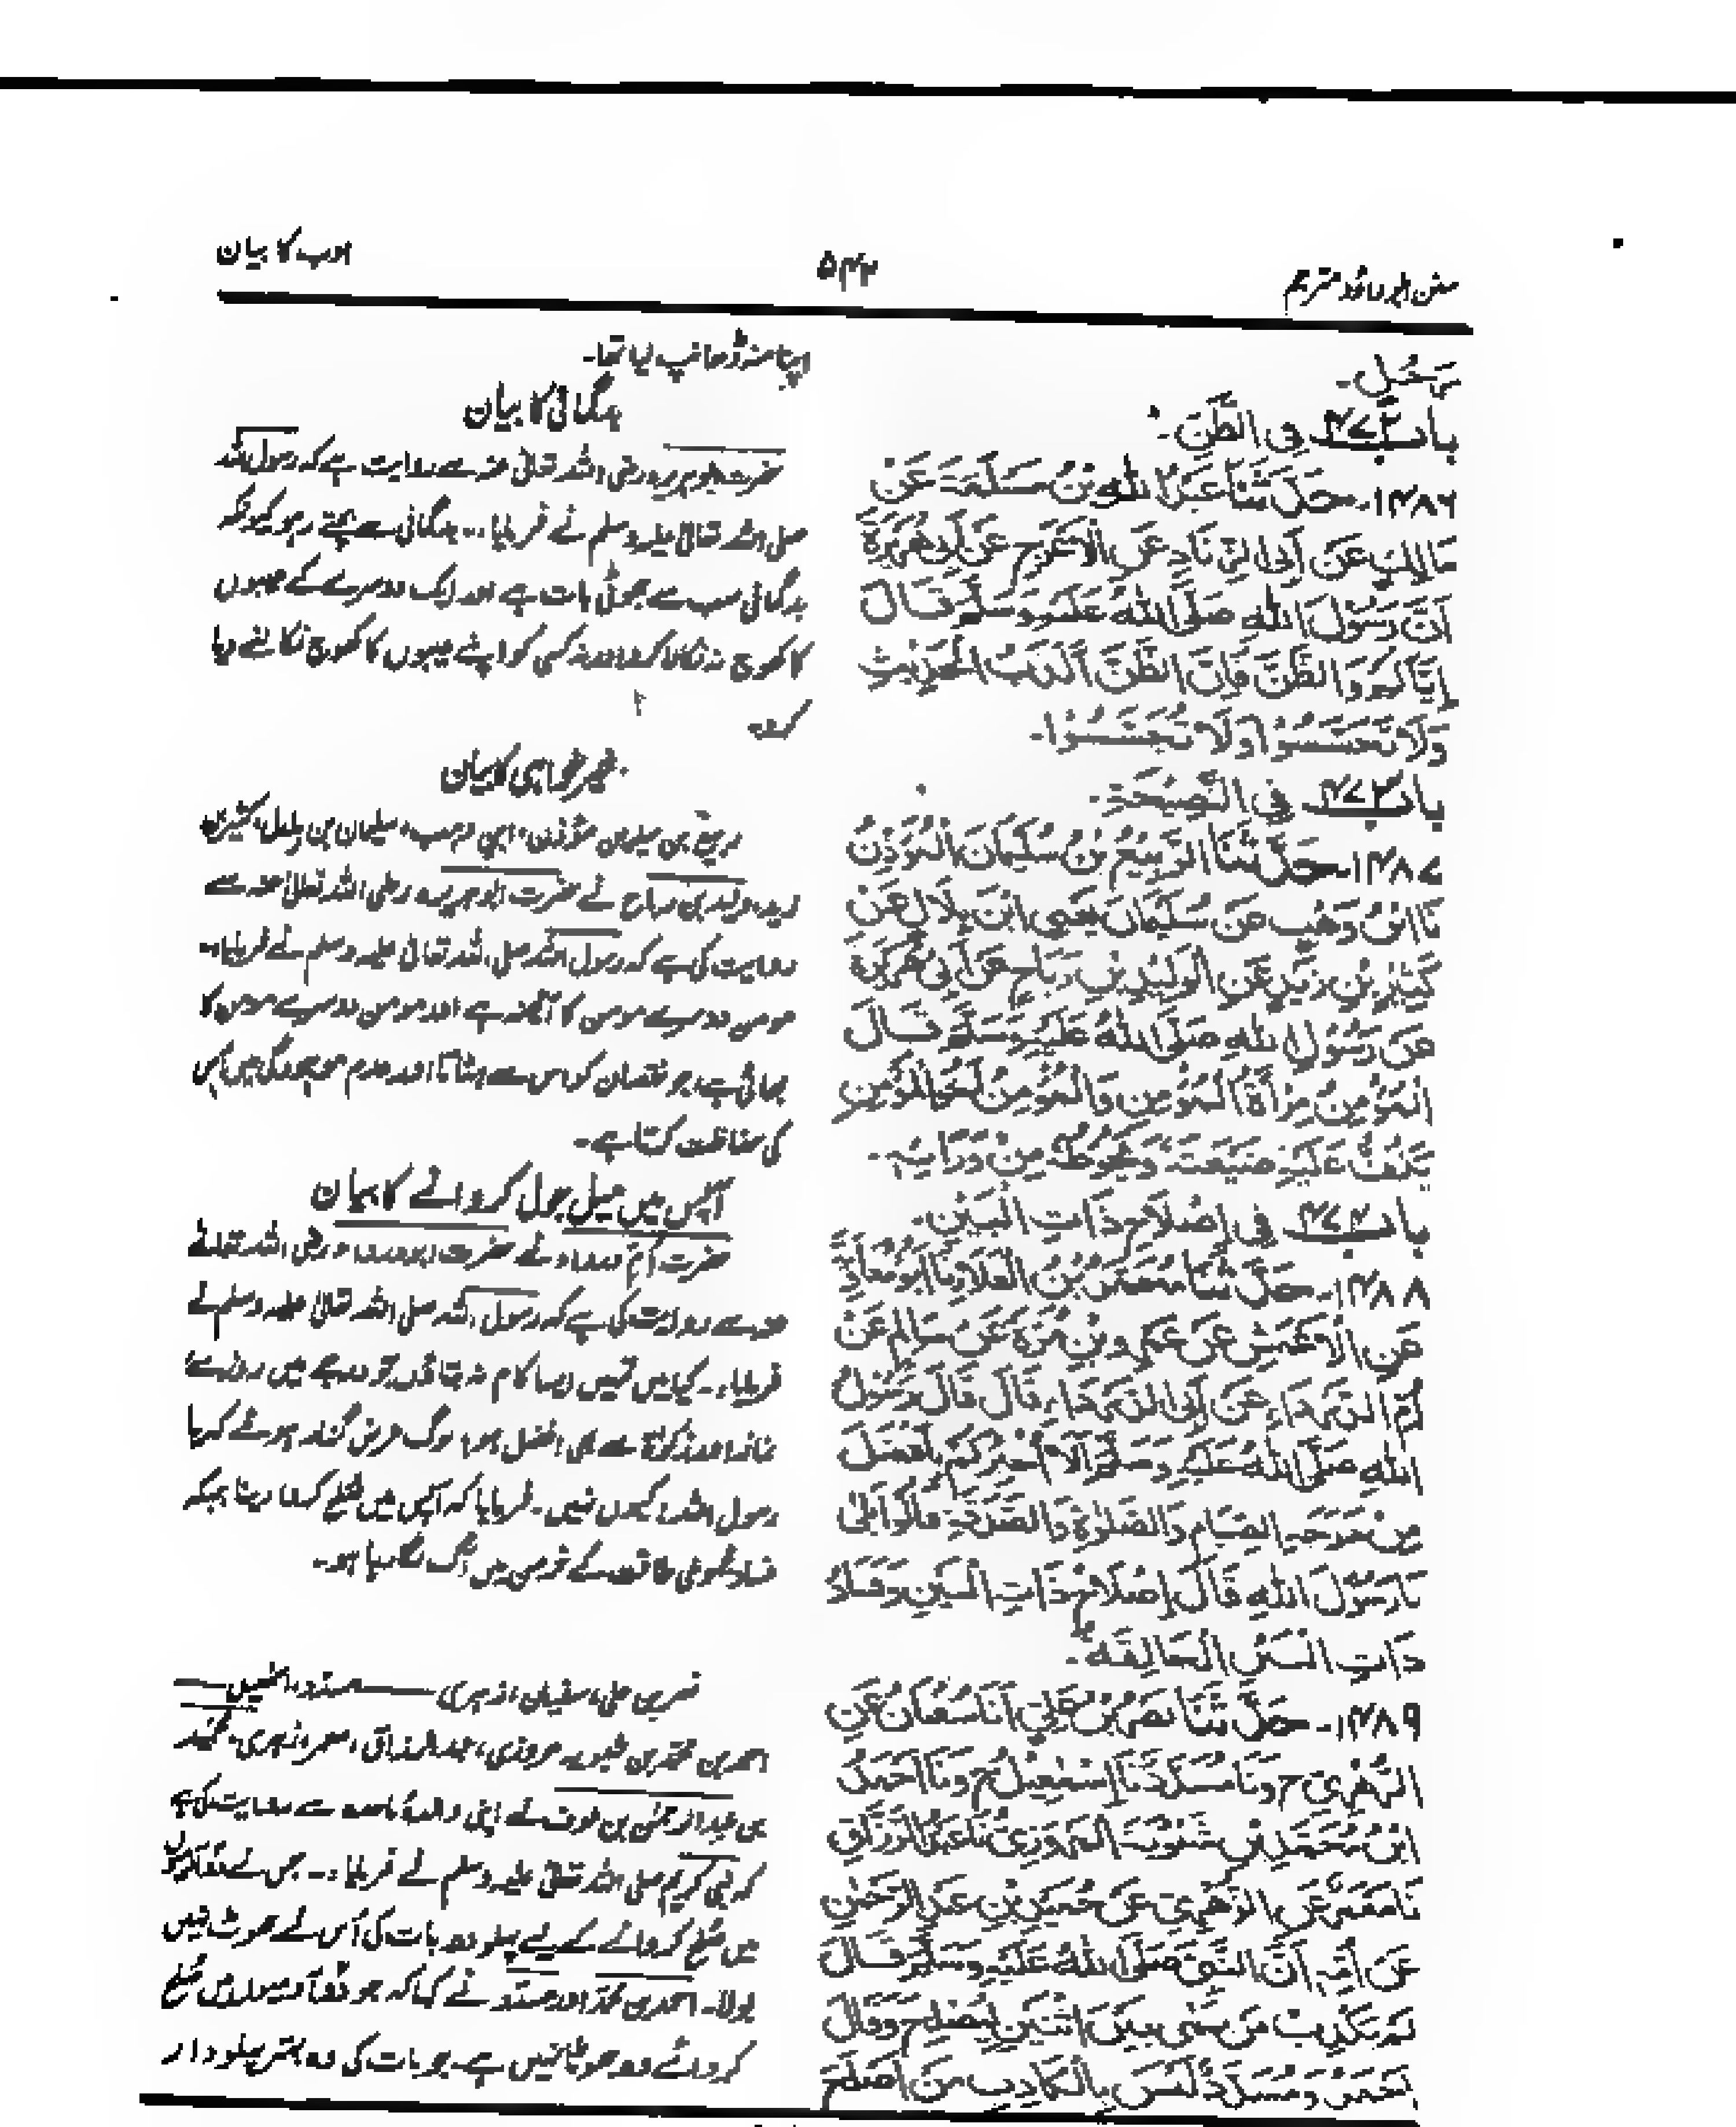 سنن ابوداؤد مترجم
۵۴۲
ادب کا بیان
رَحْلٍ۔
باب فِي الظَّنِّ۔
۱۴۸۶۔ حَدَّثَنَا عَبْدُ اللهِ بْنُ مَسْلَمَةَ عَنْ
مَالِكٍ عَنْ أَبِي الزِّنَادِ عَنِ الْأَعْرَجِ عَنْ أَبِي هُرَيْرَةَ
أَنَّ رَسُوْلَ اللهِ صَلَّى اللهُ عَلَيْهِ وَسَلَّمَ قَالَ
إِيَّاكُمْ وَالظَّنَّ فَإِنَّ الظَّنَّ أَكْذَبُ الْحَدِيْثِ
وَلَا تَحَسَّسُوْا وَلَا تَجَسَّسُوْا۔
باب فِي النَّصِيْحَةِ۔
۱۴۸۷۔ حَدَّثَنَا الرَّبِيْعُ بْنُ سُلَيْمَانَ الْمُؤَذِّنُ
نَا ابْنُ وَهْبٍ عَنْ سُلَيْمَانَ يَعْنِي ابْنَ بِلَالٍ عَنْ
كَثِيْرِ بْنِ زَيْدٍ عَنِ الْوَلِيْدِ بْنِ رَبَاحٍ عَنْ أَبِي هُرَيْرَةَ
عَنْ رَسُوْلِ اللهِ صَلَّى اللهُ عَلَيْهِ وَسَلَّمَ قَالَ
الْمُؤْمِنُ مِرْآةُ الْمُؤْمِنِ وَالْمُؤْمِنُ أَخُو الْمُؤْمِنِ
يَكُفُّ عَلَيْهِ ضَيْعَتَهُ وَيَحُوْطُهُ مِنْ وَرَائِهِ۔
باب فِي إِصْلَاحِ ذَاتِ الْبَيْنِ۔
۱۴۸۸۔ حَدَّثَنَا مُحَمَّدُ بْنُ الْعَلَاءِ نَا أَبُوْ مُعَاوِيَةَ
عَنِ الْأَعْمَشِ عَنْ عَمْرِو بْنِ مُرَّةَ عَنْ سَالِمٍ عَنْ
أُمِّ الدَّرْدَاءِ عَنْ أَبِي الدَّرْدَاءِ قَالَ قَالَ رَسُوْلُ
اللهِ صَلَّى اللهُ عَلَيْهِ وَسَلَّمَ أَلَا أُخْبِرُكُمْ بِأَفْضَلَ
مِنْ دَرَجَةِ الصِّيَامِ وَالصَّلٰوةِ وَالصَّدَقَةِ قَالُوْا بَلٰى
يَا رَسُوْلَ اللهِ قَالَ إِصْلَاحُ ذَاتِ الْبَيْنِ وَفَسَادُ
ذَاتِ الْبَيْنِ الْحَالِقَةُ۔
۱۴۸۹۔ حَدَّثَنَا نَصْرُ بْنُ عَلِيٍّ أَنَا سُفْيَانُ عَنِ
الزُّهْرِيِّ ح وَنَا مُسَدَّدٌ نَا إِسْمٰعِيْلُ ح وَنَا أَحْمَدُ
ابْنُ مُحَمَّدِ بْنِ شَبُّوْيَةَ الْمَرْوَزِيُّ نَا عَبْدُ الرَّزَّاقِ
نَا مَعْمَرٌ عَنِ الزُّهْرِيِّ عَنْ حُمَيْدِ بْنِ عَبْدِ الرَّحْمٰنِ
عَنْ أُمِّهِ أَنَّ النَّبِيَّ صَلَّى اللهُ عَلَيْهِ وَسَلَّمَ قَالَ
لَمْ يَكْذِبْ مَنْ نَمٰى بَيْنَ اثْنَيْنِ لِيُصْلِحَ وَقَالَ
أَحْمَدُ وَمُسَدَّدٌ لَيْسَ بِالْكَاذِبِ مَنْ أَصْلَحَ
اپنا منہ ڈھانپ لیا تھا۔
بدگمانی کا بیان
حضرت ابوہریرہ رضی اللہ تعالیٰ عنہ سے روایت ہے کہ رسول اللہ
صلی اللہ تعالیٰ علیہ وسلم نے فرمایا:۔ بدگمانی سے بچتے رہو کیونکہ
بدگمانی سب سے جھوٹی بات ہے اور ایک دوسرے کے عیبوں
کا کھوج نہ نکالا کرو اور نہ کسی کو اپنے عیبوں کا کھوج نکالنے دیا
کرو۔
خیر خواہی کا بیان
ربیع بن سلیمان مؤذن، ابن وہب، سلیمان بن بلال، کثیر بن
زید، ولید بن رباح نے حضرت ابوہریرہ رضی اللہ تعالیٰ عنہ سے
روایت کی ہے کہ رسول اللہ صلی اللہ تعالیٰ علیہ وسلم نے فرمایا:۔
مومن دوسرے مومن کا آئینہ ہے اور مومن دوسرے مومن کا
بھائی ہے، جو نقصان کو اس سے ہٹاتا اور عدم موجودگی میں اس
کی حفاظت کرتا ہے۔
آپس میں میل جول کروانے کا بیان
حضرت اُمّ درداء نے حضرت ابودرداء رضی اللہ تعالیٰ
عنہ سے روایت کی ہے کہ رسول اللہ صلی اللہ تعالیٰ علیہ وسلم نے
فرمایا:۔ کیا میں تمہیں ایسا کام نہ بتاؤں جو درجے میں روزے
نماز اور زکوٰۃ سے بھی افضل ہو؟ لوگ عرض گزار ہوئے کہ یا
رسول اللہ! کیوں نہیں۔ فرمایا کہ آپس میں صلح کروا دینا جبکہ
فساد طاقت کے خرمن میں آگ لگا دیا ہو۔
نصر بن علی، سفیان، زہری ـــــ مسدد، اسمٰعیل ـــــ
احمد بن محمد بن شبویہ مروزی، عبدالرزاق، معمر، زہری، حُمید
بن عبدالرحمٰن بن عوف نے اپنی والدۂ ماجدہ سے روایت کی ہے
کہ نبی کریم صلی اللہ تعالیٰ علیہ وسلم نے فرمایا:۔ جس نے دو آدمیوں
میں صلح کروانے کے لیے پہلو دار بات کی اُس نے جھوٹ نہیں
بولا۔ احمد بن محمد اور مسدد نے کہا کہ جو دو آدمیوں میں صلح
کروائے وہ جھوٹا نہیں ہے۔ جو بات کی وہ بہتر پہلو دار